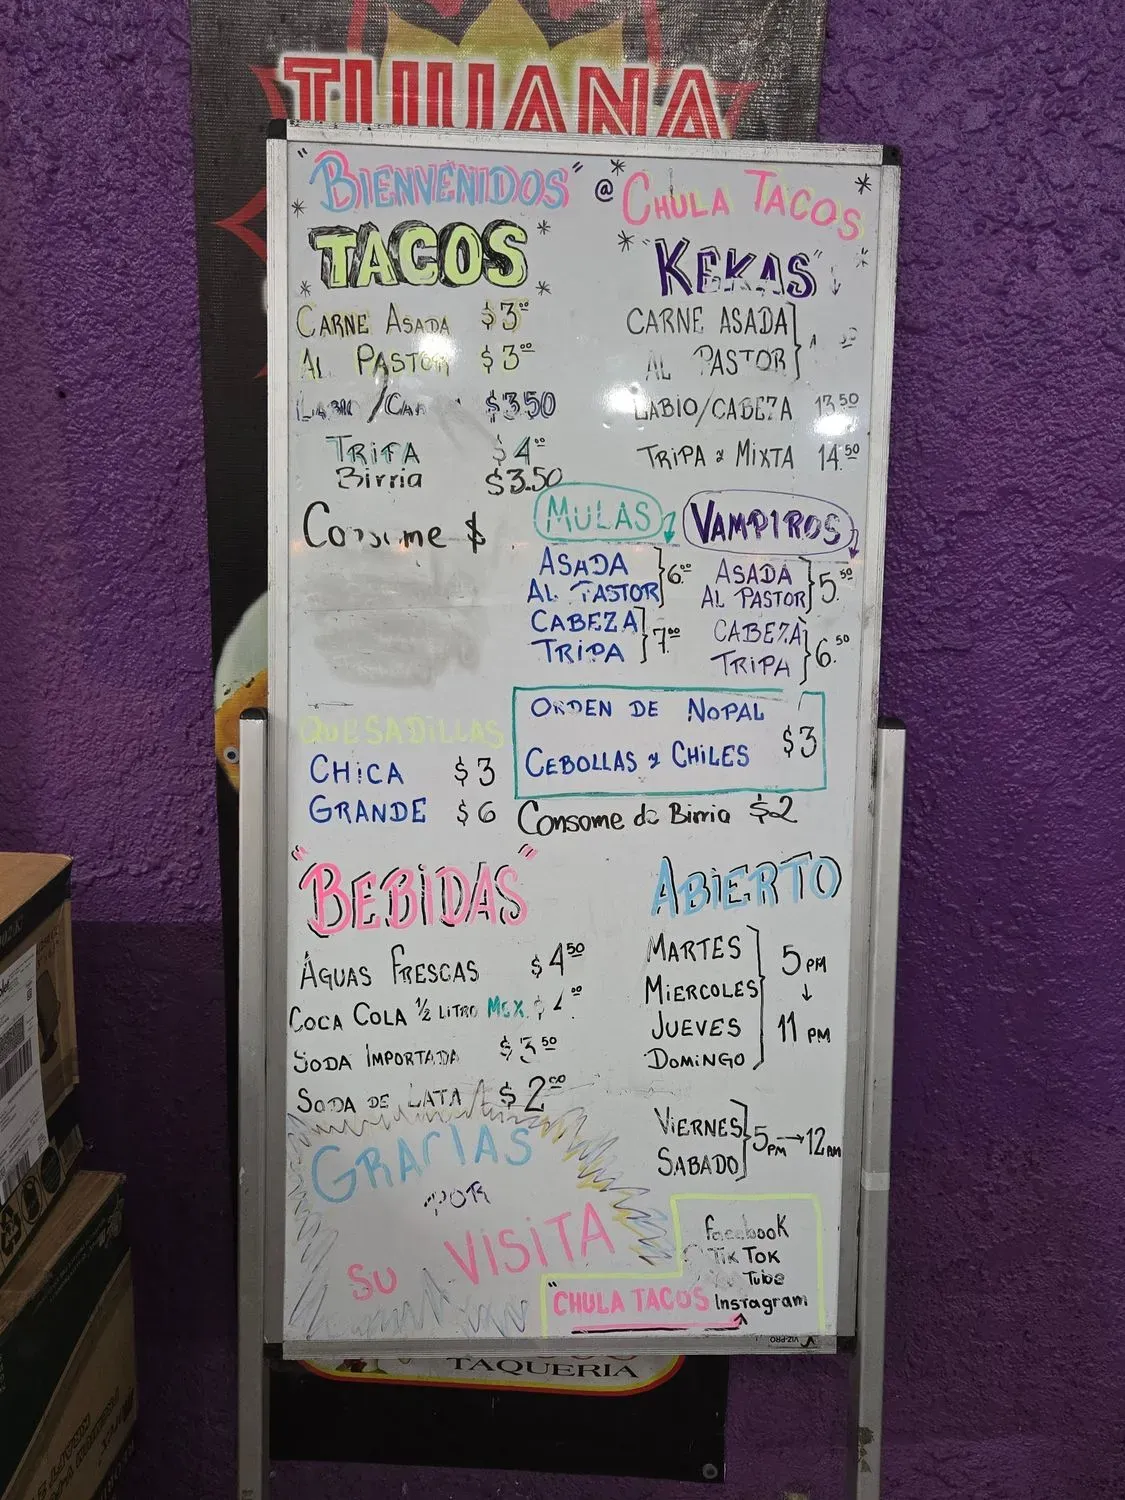 TIJUANA
"BIENVENIDOS" @ CHULA TACOS
TACOS
CARNE ASADA $3°°
AL PASTOR $3°°
LABIO/ $3.50
TRIPA $4°°
Birria $3.50
Consome $
"KEKAS"
CARNE ASADA
AL PASTOR
LABIO/CABEZA 13.50
TRIPA y MIXTA 14.50
MULAS
ASADA
AL PASTOR 6.°°
CABEZA
TRIPA 7.°°
VAMPIROS
ASADA
AL PASTOR 5.50
CABEZA
TRIPA 6.50
QUESADILLAS
CHICA $3
GRANDE $6
ORDEN DE NOPAL
CEBOLLAS y CHILES $3
Consome de Birria $2
"BEBIDAS"
AGUAS FRESCAS $4.50
COCA COLA ½ LITRO MEX. $
SODA IMPORTADA $3.50
SODA DE LATA $2.°°
ABIERTO
MARTES
MIERCOLES
JUEVES
DOMINGO
5 PM
↓
11 PM
VIERNES
SABADO
5PM→12AM
GRACIAS
POR
SU VISITA
Facebook
Tik Tok
Tube
"CHULA TACOS Instragram
VIZ-PRO
TAQUERIA